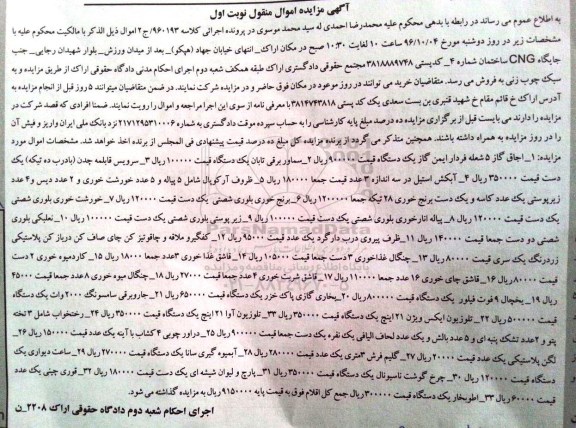 آگهی مزایده اموال منقول نوبت اول
به اطلاع عموم می رساند در رابطه با بدهی محکوم علیه محمدرضا احمدی له سید محمد موسوی در پرونده اجرائی کلاسه ۹۶۰۱۹۳ج۲ اموال ذیل الذکر با مالکیت محکوم علیه با
مشخصات زیر در روز دوشنبه مورخ ۹۶/۱۰/۰۴ ساعت ۱۰ لغایت ۱۰:۳۰ صبح در مکان اراک_ انتهای خیابان جهاد (هپکو)_ بعد از میدان ورزش_ بلوار شهیدان رجایی_ جنب
جایگاه CNG ساختمان شماره ۴_ کدپستی ۳۸۱۸۸۸۹۷۴۸ مجتمع حقوقی دادگستری اراک طبقه همکف شعبه دوم اجرای احکام مدنی دادگاه حقوقی اراک از طریق مزایده و به
سبک چوب زنی به فروش می رسد. متقاضیان خرید می توانند در روز موعود در مکان فوق حاضر و در مزایده شرکت نمایند. در ضمن متقاضیان میتوانند ۵ روز قبل از انجام مزایده به
آدرس اراک خ قائم مقام خ شهید قنبری بن بست سعدی یک کد پستی ۳۸۱۴۷۴۳۸۱۸ با معرفی نامه از سوی این اجرا مراجعه و اموال را رویت نمایند. ضمنا افرادی که قصد شرکت در
مزایده را دارند می بایست قبل از برگزاری مزایده ده درصد مبلغ پایه کارشناسی را به حساب سپرده موقت دادگستری به شماره ۲۱۷۱۲۹۵۳۱۰۰۰۶ نزد بانک ملی ایران واریز و فیش آن
را در روز مزایده به همراه داشته باشند. همچنین متذکر می گردد از برنده مزایده کل مبلغ ده درصد قیمت پیشنهادی فی المجلس از برنده اخذ خواهد شد. مشخصات اموال مورد
مزایده: ۱_ اجاق گاز ۵ شعله فردار ایمن گاز یک دستگاه قیمت ۹۰۰۰۰۰ ریال ۲_ سماور برقی تابان یک دستگاه قیمت ۱۰۰۰۰۰ ریال ۳_ سرویس قابلمه چدن (بادر ده تیکه) یک
دست قیمت ۳۵۰۰۰۰ ریال ۴_ آبکش استیل در سه اندازه ۳ عدد قیمت جمعا ۱۸۰۰۰۰ ریال ۵_ ظروف آرکوپال شامل ۵ پیاله و ۵ عدد خورشت خوری و ۲ عدد دیس و ۴ عدد
زیرپوستی یک عدد کاسه و یک دست برنج خوری ۲۸ تیکه جمعا ۱۲۰۰۰۰۰ ریال ۶_ برنج خوری بلوری شصتی یک دست قیمت ۱۲۰۰۰۰ ریال ۷_ خورشت خوری بلوری شصتی
یک دست قیمت ۱۲۰۰۰۰ ریال ۸_ پیاله انارخوری بلوری شصتی یک دست قیمت ۱۰۰۰۰۰ ریال ۹_ زیر پوستی بلوری شصتی یک دست قیمت ۱۰۰۰۰۰ ریال ۱۰_ نعلبکی بلوری
شصتی دو دست جمعا قیمت ۱۴۰۰۰۰ ریال ۱۱_ ظرف پیروی درب دار گرد یک عدد قیمت ۹۵۰۰۰ ریال ۱۲_ کفگیر و ملاقه و چاقوتیز کن چای صاف کن درباز کن پلاستیکی
زردرنگ یک سری قیمت ۸۰۰۰۰ ریال ۱۳_ چنگال غذاخوری ۳ دست جمعا قیمت ۱۰۵۰۰۰ ریال ۱۴_ قاشق غذا خوری ۳ عدد جمعا ۱۸۰۰۰ ریال ۱۵_ کاردمیوه خوری ۲ دست
قیمت ۸۰۰۰۰ ریال ۱۶_ قاشق چای خوری ۱۶ عدد جمعا ۱۱۰۰۰۰ ریال ۱۷_ قاشق شربت خوری ۴ عدد جمعا قیمت ۲۷۰۰۰ ریال ۱۸_ چنگال میوه خوری ۸ عدد جمعا قیمت ۴۵۰۰۰
ریال ۱۹_ یخچال ۹ فوت فیلور یک دستگاه قیمت ۸۰۰۰۰۰ ریال ۲۰_ بخاری گازی پاک خزر یک دستگاه قیمت ۶۵۰۰۰۰ ریال ۲۱_ جاروبرقی سامسونگ ۲۰۰۰ وات یک دستگاه
قیمت ۵۰۰۰۰۰ ریال ۲۲_ تلوزیون ایکس ویژن ۲۱ اینچ یک دستگاه قیمت ۳۵۰۰۰۰ ریال ۲۳_ تلوزیون آوا ۲۱ اینچ یک دستگاه قیمت ۳۵۰۰۰۰ ریال ۲۴_ رختخواب شامل ۳ تخته
پتو و ۲ عدد تشک پنبه ای و ۵ عدد بالش و یک عدد لحاف الیافی یک نفره یک دست جمعا قیمت ۹۰۰۰۰۰ ریال ۲۵_ دراور چوبی ۴ کشاب با آینه یک عدد قیمت ۱۵۰۰۰۰۰ ریال ۲۶_
لگن پلاستیکی یک عدد قیمت ۲۰۰۰۰ ریال ۲۷_ گلیم فرش ۳ متری یک عدد قیمت ۲۸۰۰۰۰ ریال ۲۸_ آبمیوه گیری سانا یک دستگاه قیمت ۲۷۰۰۰۰ ریال ۲۹_ ساعت دیواری یک
دستگاه قیمت ۱۲۰۰۰۰ ریال ۳۰_ چرخ گوشت ناسیونال یک دستگاه قیمت ۳۵۰۰۰۰ ریال ۳۱_ پارچ و لیوان شیشه ای یک دست قیمت ۱۸۰۰۰۰ ریال ۳۲_ قوری چینی یک عدد
قیمت ۶۰۰۰۰ ریال ۳۳_ اطوبخار یک دستگاه قیمت ۳۰۰۰۰۰ ریال جمع کل اقلام فوق به قیمت پایه ۹۱۵۰۰۰۰ ریال به مزایده گذاشته می شود.
اجرای احکام شعبه دوم دادگاه حقوقی اراک ۲۲۰۸_ن